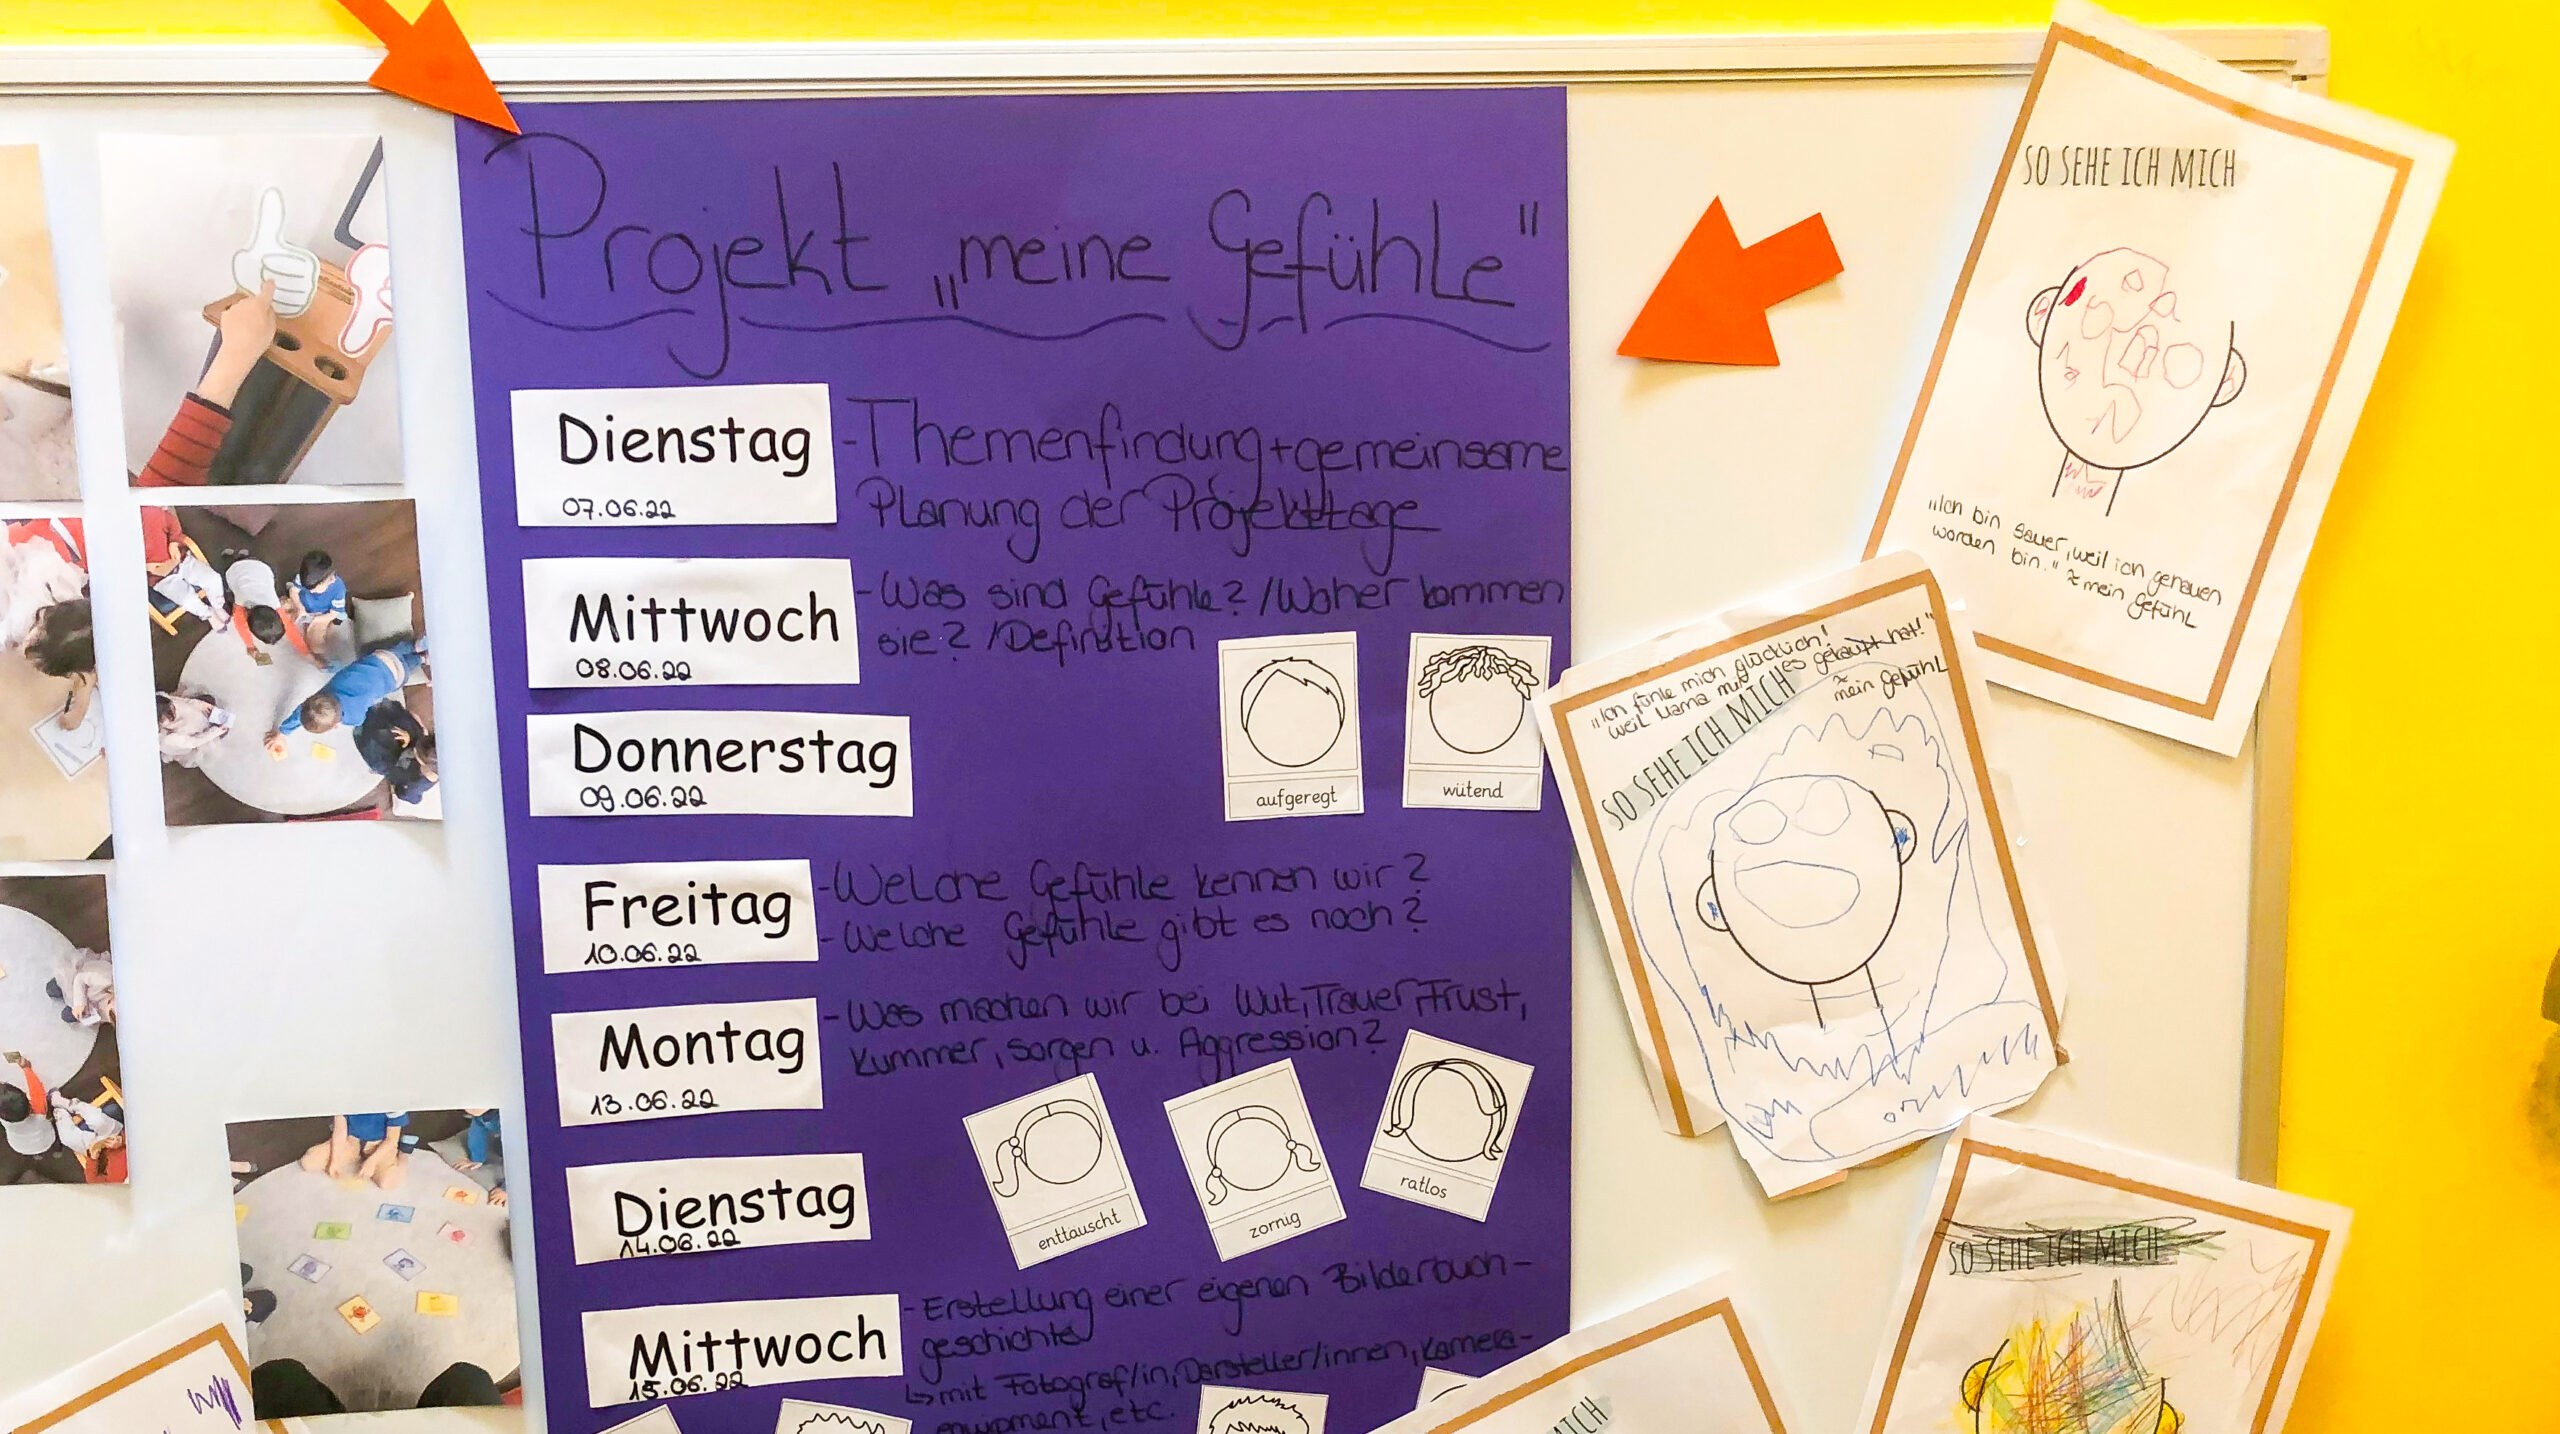 Projekt „meine Gefühle"
Dienstag
07.06.22
-Themenfindung+gemeinsame
Planung der Projekttage
Mittwoch
08.06.22
-Was sind Gefühle? /Woher kommen
sie? /Definition
aufgeregt
wütend
Donnerstag
09.06.22
Freitag
10.06.22
-Welche Gefühle kennen wir?
-Welche Gefühle gibt es noch?
Montag
13.06.22
-Was machen wir bei Wut, Trauer, Frust,
Kummer, Sorgen u. Aggression?
enttäuscht
zornig
ratlos
Dienstag
14.06.22
Mittwoch
15.06.22
-Erstellung einer eigenen Bilderbuch-
geschichte
↳ mit Fotograf/in, Darsteller/innen, Kamera-
equipment, etc.
SO SEHE ICH MICH
„Ich bin sauer, weil ich gehauen
worden bin." ~ mein Gefühl
„Ich fühle mich glücklich!
weil Mama mir es gekauft hat!"
~ mein Gefühl
SO SEHE ICH MICH
SO SEHE ICH MICH
MICH